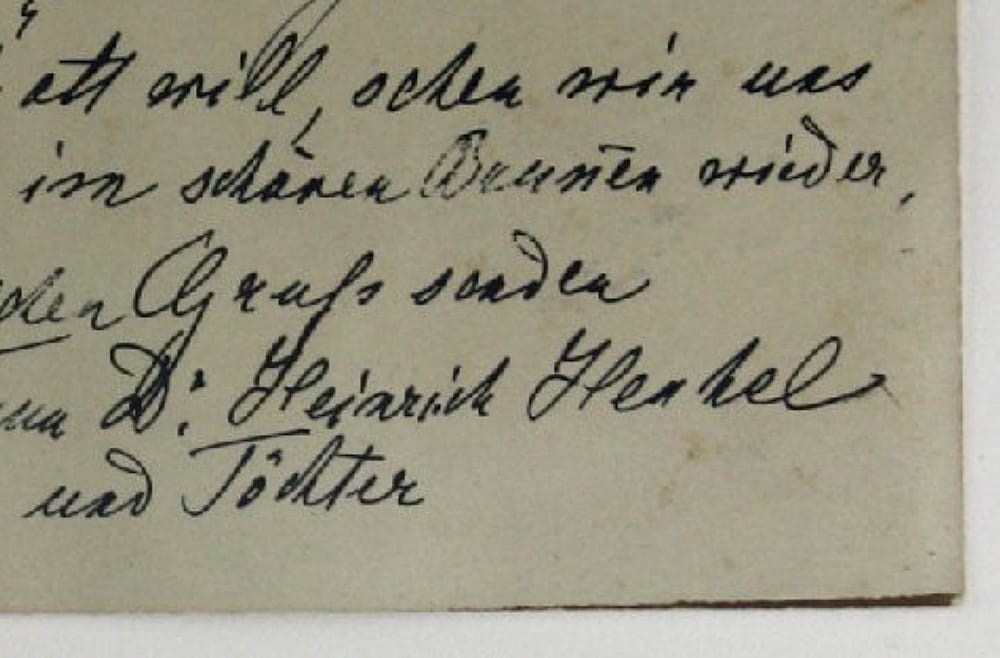 Gott will, sehen wir uns
im schönen Brunnen wieder,
Gruß senden
Dr. Heinrich Henkel
und Töchter